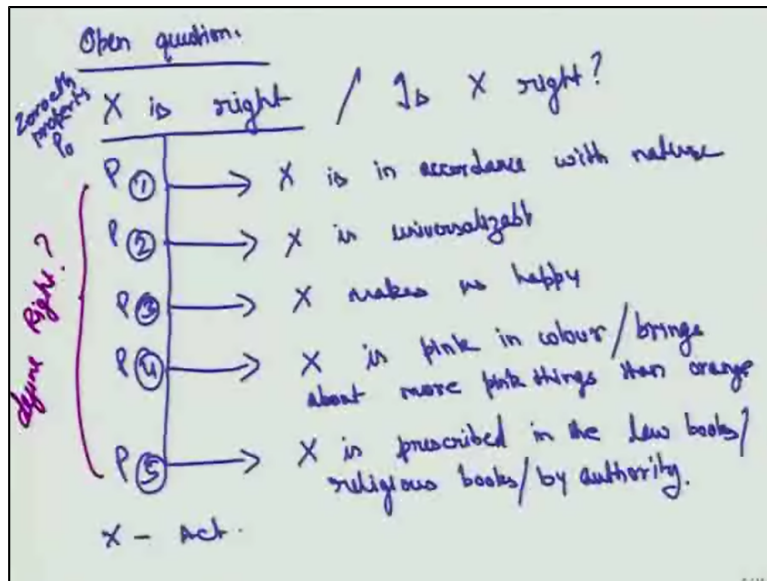 Open question.
Zoroeth property P0
X is right / Is X right?
P① → X is in accordance with nature
P② → X is universalizabl
P③ → X makes us happy
P④ → X is pink in colour/brings
about more pink things than orange
P⑤ → X is prescribed in the law books/
religious books/by authority.
define Right?
X - Act.